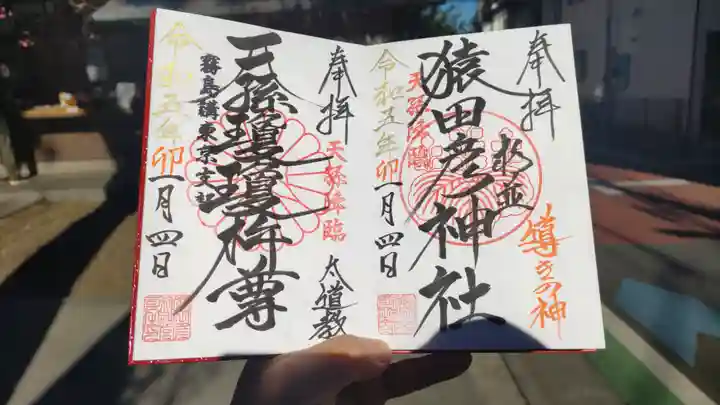 奉拝
導きの神
猿田彦神社
天孫降臨
令和五年卯一月四日
奉拝
天孫降臨
大道教
天孫瓊瓊杵尊
霧島講東京支部
令和五年卯一月四日